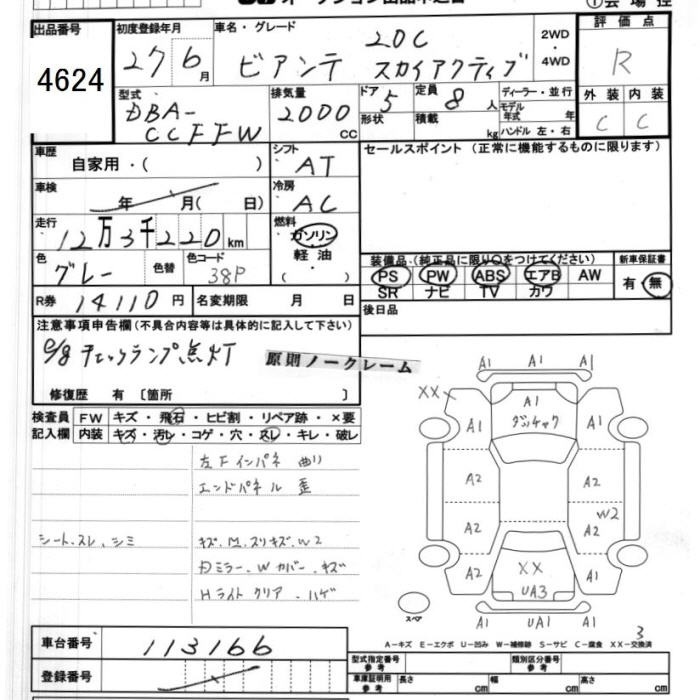 出品番号
4624
初度登録年月
27 6月
車名・グレード
20C
ビアンテ スカイアクティブ
2WD
・
4WD
評価点
R
型式
DBA-
CCFFW
排気量
2000
cc
ドア 5
形状
定員 8人
積載 kg
ディーラー・並行
モデル年式 年
ハンドル 左・右
外装 内装
C C
車歴
自家用・( )
シフト
AT
セールスポイント (正常に機能するものに限ります)
車検
年 月( 日)
冷房
AC
走行
12万3千220km
燃料
ガソリン
軽油
・( )
色
グレー
色替
色コード
38P
装備品・(純正品に限り○をつけてください)
PS PW ABS エアB AW
SR ナビ TV カワ
新車保証書
有・無
R券 14110円
名変期限 月 日
後日品
注意事項申告欄(不具合内容等は具体的に記入して下さい)
チェックランプ点灯
原則ノークレーム
修復歴 有 〔箇所 〕
検査員
記入欄
FW キズ・飛石・ヒビ割・リペア跡・×要
内装 キズ・汚レ・コゲ・穴・スレ・キレ・破レ
左Fインパネ 曲り
エンドパネル 歪
シート、スレ、シミ
キズ、M、スリキズ、W2
Dミラー、Wカバー、キズ
Hライト クリア、ハゲ
A1 A1 A1
XX
A1 A1 A1
ダッチャク
A2 A2
W2
A2 A2
A2 XX A1
UA3
スペア
A1 UA1 A1
3
A-キズ E-エクボ U-凹み W-補修跡 S-サビ C-腐食 XX-交換済
車台番号 113166
登録番号
型式指定番号
参考
類別区分番号
参考
車庫証明用
参考
長さ cm
幅 cm
高さ cm